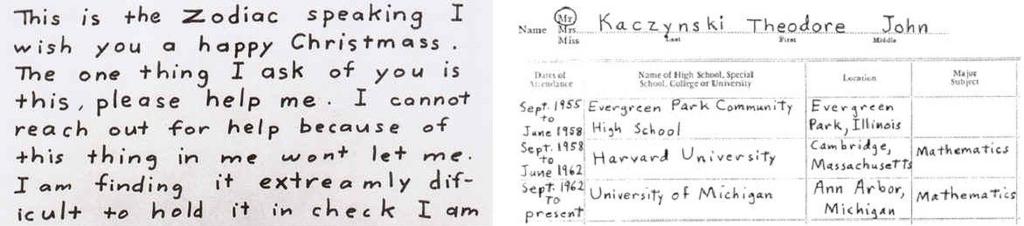 This is the Zodiac speaking I
wish you a happy Christmass.
The one thing I ask of you is
this, please help me. I cannot
reach out for help because of
this thing in me wont let me.
I am finding it extreamly dif-
icult to hold it in check I am
Mr.
Name Mrs. Kaczynski Theodore John
Miss Last First Middle
Dates of Attendance Name of High School, Special School, College or University Location Major Subject
Sept. 1955 Evergreen Park Community Evergreen
to
June 1958 High School Park, Illinois
Sept. 1958 Harvard University Cambridge, Mathematics
to
June 1962 Massachusetts
Sept. 1962 University of Michigan Ann Arbor, Mathematics
TO
present Michigan